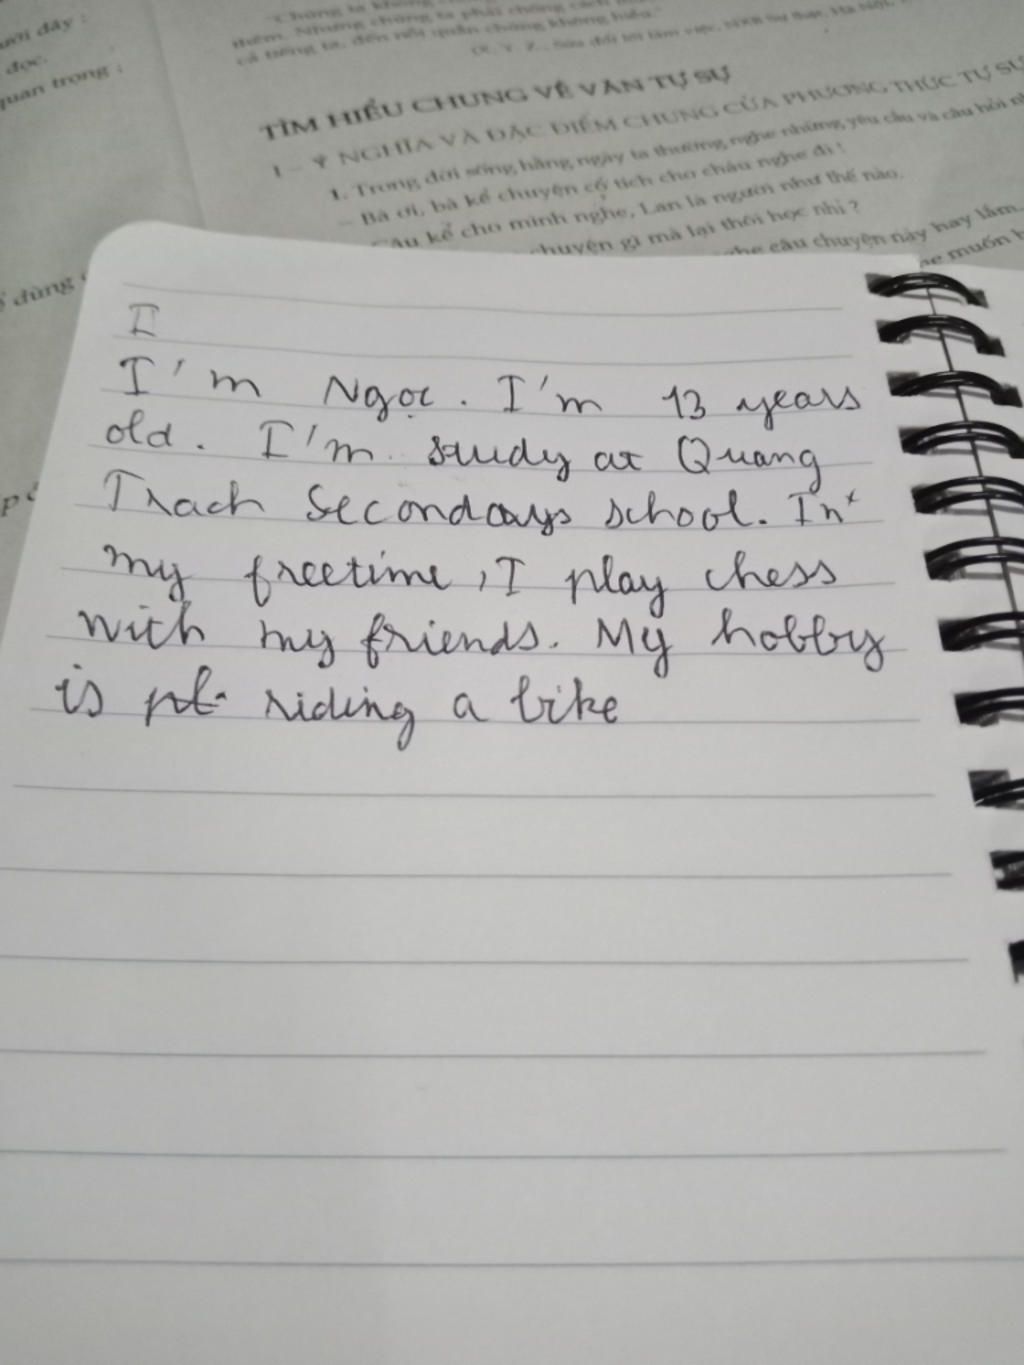 ười đây :
đọc.
quan trọng :
thêm. Nhưng chúng ta phải chống cách
cả tiếng ta, đến nỗi quần chúng không hiểu."
TÌM HIỂU CHUNG VỀ VĂN TỰ SỰ
I – Ý NGHĨA VÀ ĐẶC ĐIỂM CHUNG CỦA PHƯƠNG THỨC TỰ SỰ
1. Trong đời sống hằng ngày ta thường nghe những yêu cầu và câu hỏi
– Bà ơi, bà kể chuyện cổ tích cho cháu nghe đi !
Cậu kể cho mình nghe, Lan là người như thế nào.
chuyện gì mà lại thôi học nhỉ ?
nghe câu chuyện này hay lắm.
muốn
dùng
I
I'm Ngọc. I'm 13 years
old. I'm study at Quang
Trach Secondays school. In
my freetime, I play chess
with my friends. My hobby
is riding a bike